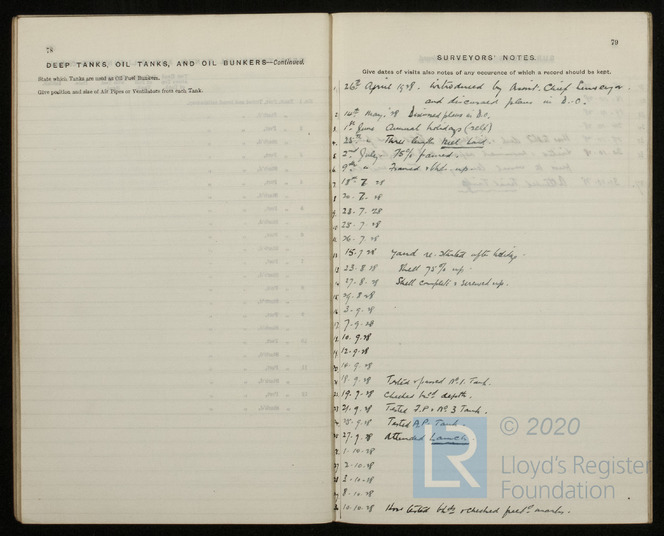 78
DEEP TANKS, OIL TANKS, AND OIL BUNKERS—Continued.
State which Tanks are used as Oil Fuel Bunkers.
Give position and size of Air Pipes or Ventilators from each Tank.
79
SURVEYORS' NOTES.
Give dates of visits also notes of any occurence of which a record should be kept.
1. 26th April 1928. Introduced by Assist. Chief Surveyor
and discussed plans in D.O.
2. 14th May '28 Discussed plans in D.O.
3. 1st June Annual holidays (self)
4. 28th " Three lengths keel laid
5. 2nd July 75% framed.
6. 9th " Framed
7. 18th 7. 28
8. 20. 7. 28
9. 23. 7. 28
25. 7. 28
26. 7. 28
15. 8 yard re-started after holiday
23. 8 28 Shell 75% up.
27. 8. 28 Shell complete & screwed up.
29. 8. 28
3. 9. 28
7. 9. 28
10. 9. 28
12. 9. 28
14. 9. 28
18. 9. 28 Tested & passed No. 1. Tank.
19. 9. 28 Checked depth.
21. 9. 28 Tested F.P. & No 3 Tank.
25. 9. 28 Tested A.P. Tank.
27. 9. 28 Attended Launch.
1. 10. 28
2. 10. 28
3. 10. 28
8. 10. 28
10. 10. 28 Hose tested & checked marks.
© 2020
LR
Lloyd's Register
Foundation